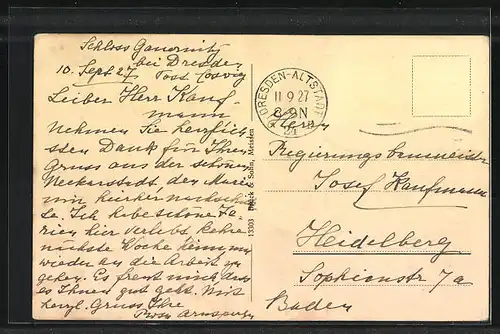 Schloss Gauernitz
bei Dresden
10. Sept 27. Post Coswig
Lieber Herr Kauf-
mann
Nehmen Sie herzlich-
sten Dank für Ihren
Gruss aus der schönen
Neckarstadt, den Marie
mir hierher nachsch
te. Ich habe schöne Fe-
rien hier verlebt, kehre
nächste Woche
wieder an die Arbeit zu
gehen. Es freut mich, dass
es Ihnen gut geht. Mit
herzl. Gruss Ihre
Rosa
13301 Brück & Sohn, Meissen
DRESDEN-ALTSTADT
11 9 27
8-9N
Herrn
Regierungsbaumeister
Josef Kaufmann
Heidelberg
Sophienstr 7a
Baden